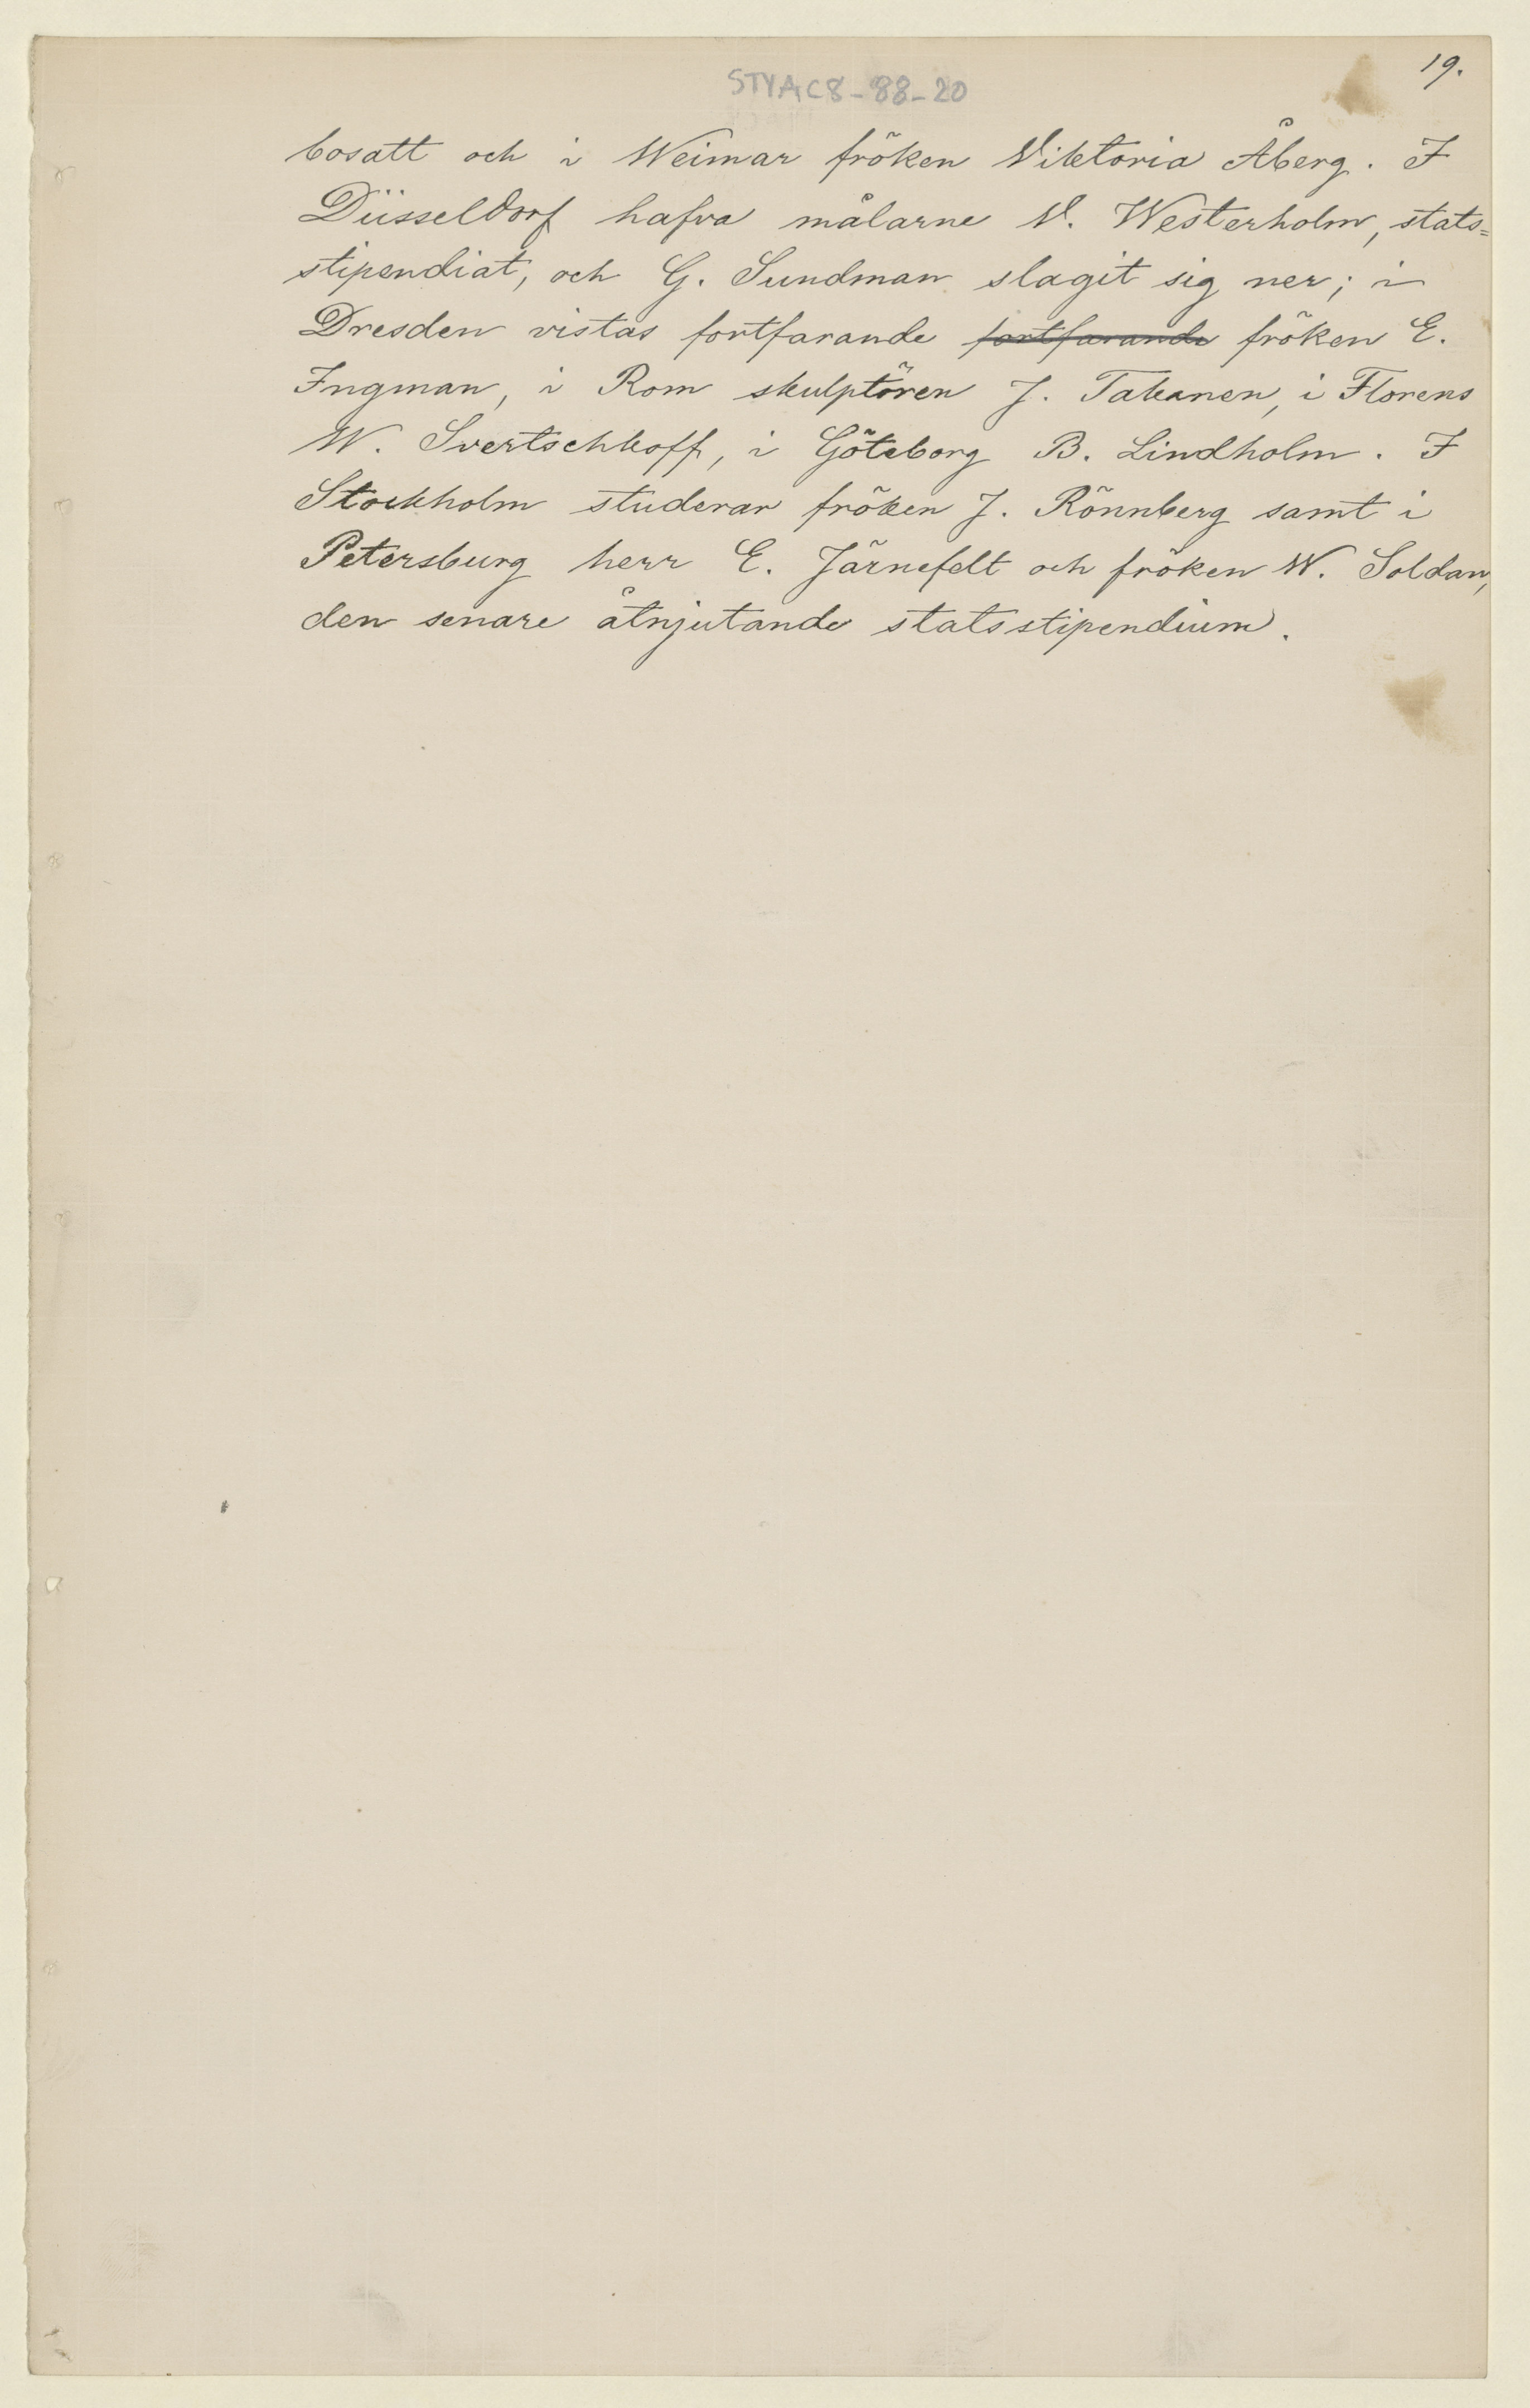 19.
STYA, C8-88-20
bosatt och i Weimar fröken Viktoria Åberg. I
Düsseldorf hafva målarne V. Westerholm, stats=
stipendiat, och G. Sundman slagit sig ner; i
Dresden vistas fortfarande fortfarande fröken E.
Ingman, i Rom skulptören J. Takanen, i Florens
W. Svertschkoff, i Göteborg B. Lindholm. I
Stockholm studerar fröken J. Rönnberg samt i
Petersburg herr E. Järnefelt och fröken W. Soldan,
den senare åtnjutande statsstipendium.